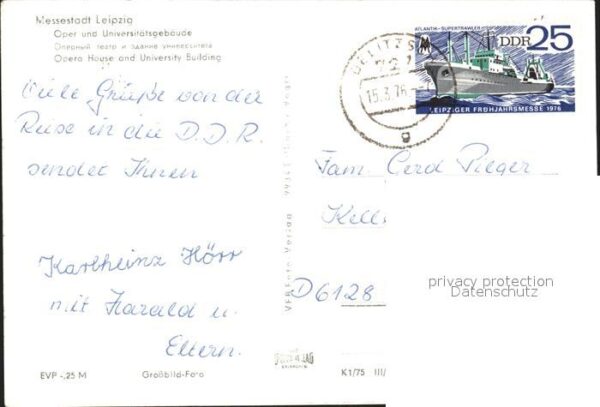 Messestadt Leipzig
Oper und Universitätsgebäude
Оперный театр и здание университета
Opera House and University Building
ATLANTIK-SUPERTRAWLER
DDR 25
LEIPZIGER FRÜHJAHRSMESSE 1976
15.3.76
Viele Grüße von der
Reise in die D.D.R.
sendet Ihnen
Karlheinz Hörr
mit Harald u.
Eltern.
Fam. Gerd Pleger
Kell
D 6128
privacy protection
Datenschutz
EVP -,25 M
Großbild-Foto
K1/75 III/